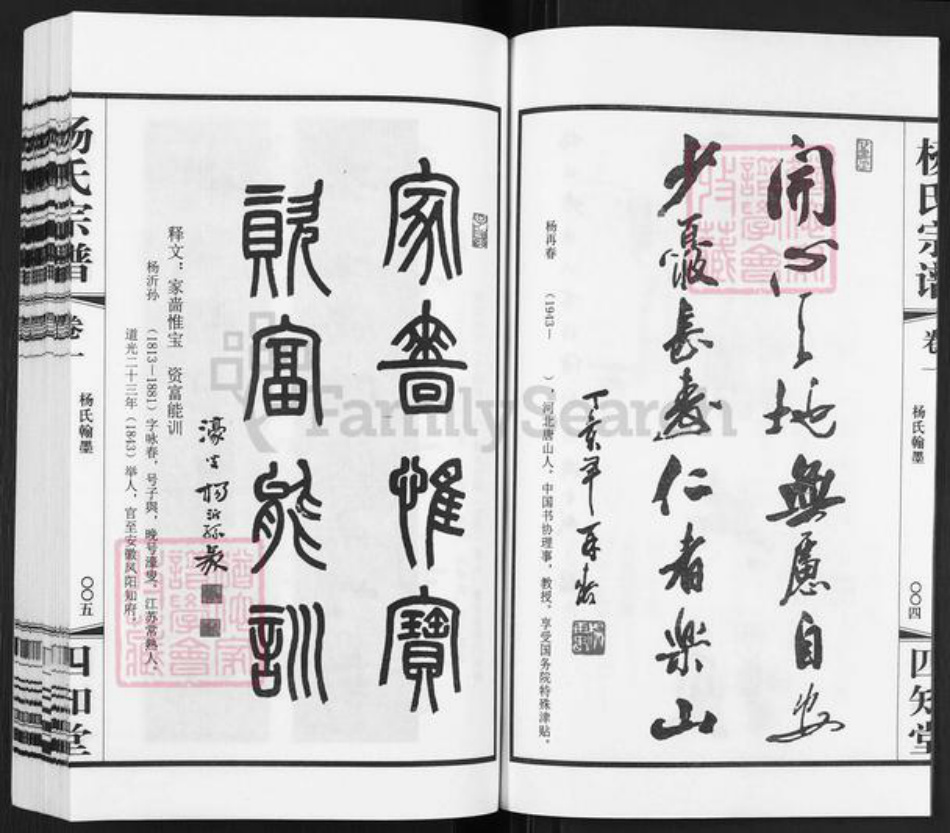 杨氏宗谱
卷一
杨氏翰墨
〇〇四
四知堂
開心之地無慮自安
少憂長壽仁者樂山
丁亥年再春
杨再春 (1943— ),河北唐山人。中国书协理事,教授。享受国务院特殊津贴。
家啬惟寶
資富能訓
濠叟楊沂孫篆
释文:家啬惟宝 资富能训
杨沂孙 (1813—1881) 字咏春,号子舆,晚号濠叟,江苏常熟人,
道光二十三年 (1843) 举人,官至安徽凤阳知府。
杨氏宗谱
卷一
杨氏翰墨
〇〇五
四知堂
FamilySearch